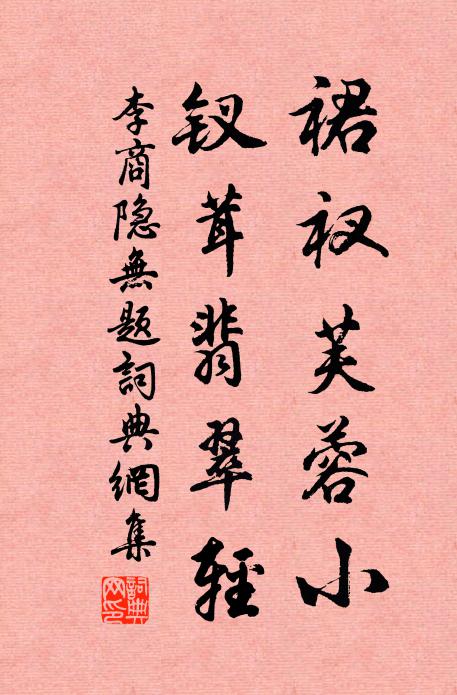 裙衩芙蓉小
钗茸翡翠轻
李商隐無题詞典網集
詞典
网印